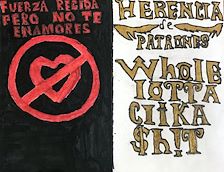 FUERZA REGIDA
PERO NO TE
ENAMORES
HERENCIA
de
PATRONES
WhOle
lOTTA
CliKA
$h!T